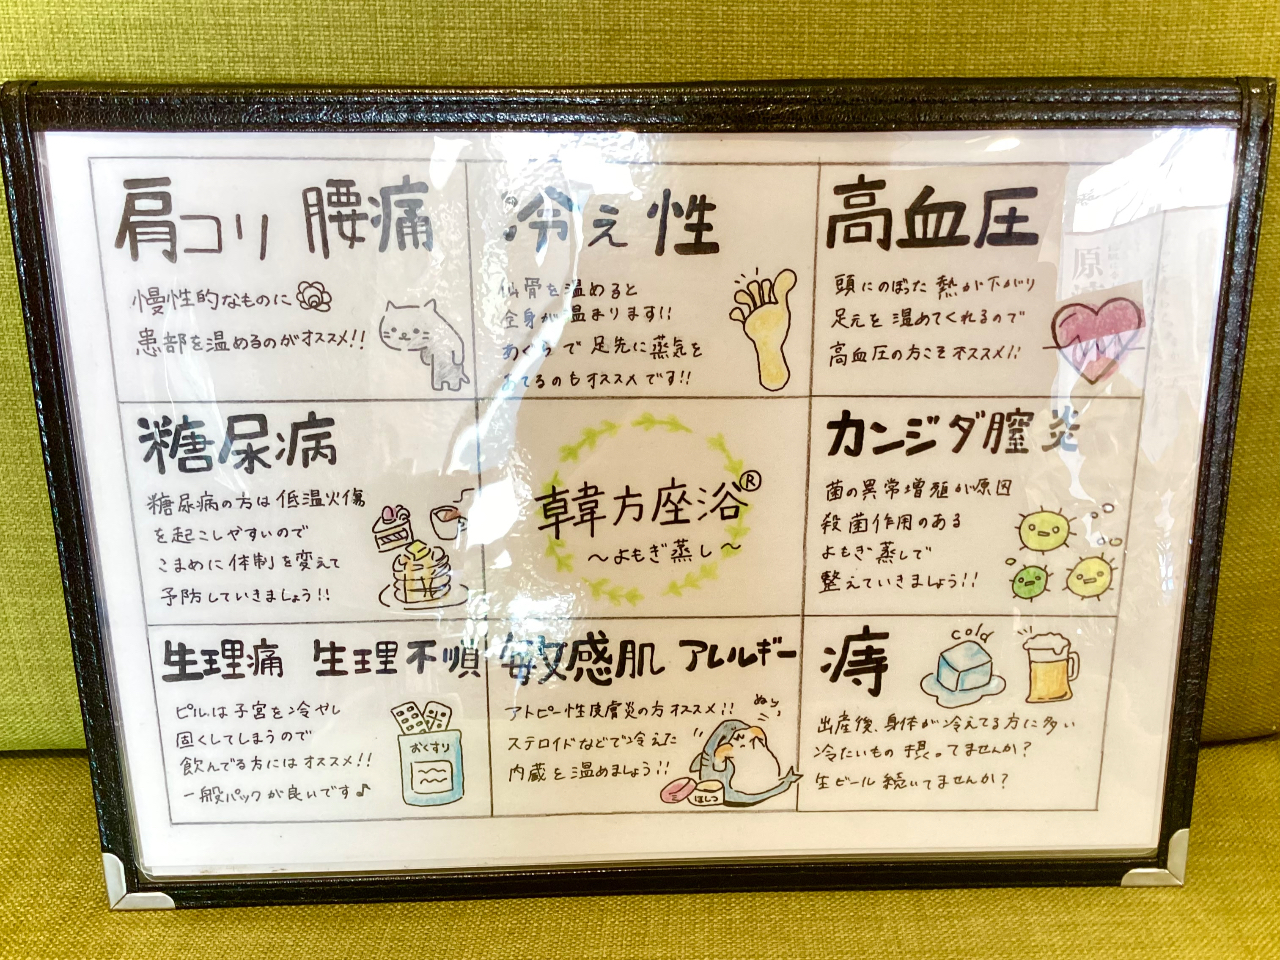 肩コリ 腰痛
慢性的なものに
患部を温めるのがオススメ!!
冷え性
仙骨を温めると
全身が温まります!!
あぐらで足先に蒸気を
あてるのもオススメです!!
高血圧
頭にのぼった熱が下がり
足元を温めてくれるので
高血圧の方こそオススメ!!
糖尿病
糖尿病の方は低温火傷
を起こしやすいので
こまめに体制を変えて
予防していきましょう!!
韓方座浴®
～よもぎ蒸し～
カンジダ膣炎
菌の異常増殖が原因
殺菌作用のある
よもぎ蒸しで
整えていきましょう!!
生理痛 生理不順
ピルは子宮を冷やし
固くしてしまうので
飲んでる方にはオススメ!!
一般パックが良いです♪
おくすり
敏感肌 アレルギー
アトピー性皮膚炎の方オススメ!!
ステロイドなどで冷えた
内蔵を温めましょう!!
ぬり
ほしつ
痔
cold
出産後、身体が冷えてる方に多い
冷たいもの摂ってませんか?
生ビール続いてませんか?
原